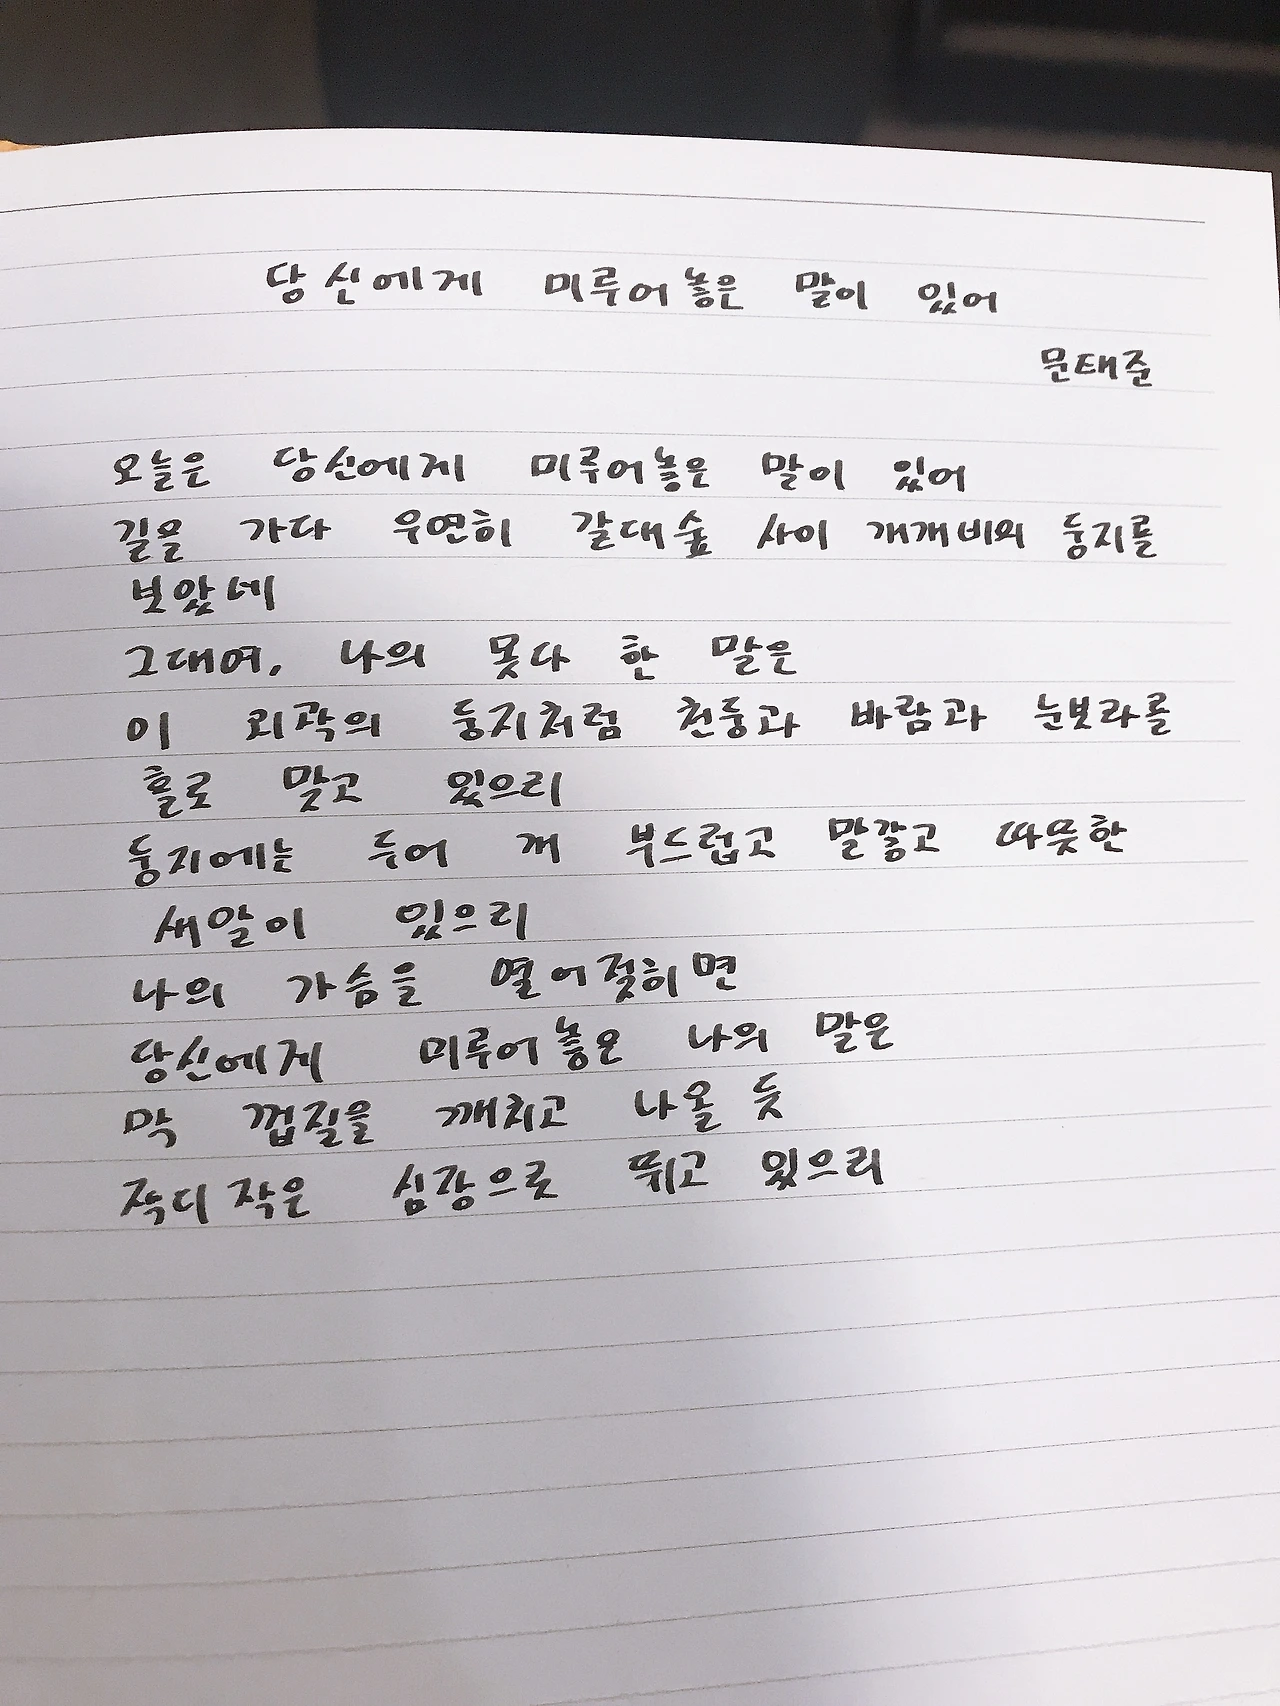 당신에게 미루어놓은 말이 있어
문태준
오늘은 당신에게 미루어놓은 말이 있어
길을 가다 우연히 갈대숲 사이 개개비의 둥지를
보았네
그대여, 나의 못다 한 말은
이 외곽의 둥지처럼 천둥과 바람과 눈보라를
홀로 맞고 있으리
둥지에는 두어 개 부드럽고 말갛고 따뜻한
새알이 있으리
나의 가슴을 열어젖히면
당신에게 미루어놓은 나의 말은
막 껍질을 깨치고 나올 듯
작디 작은 심장으로 뛰고 있으리